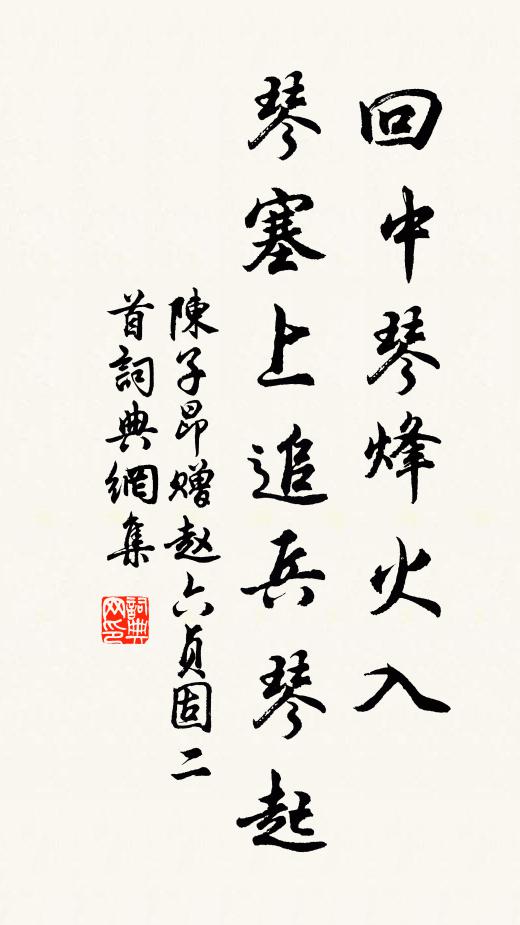 回中琴烽火入
琴塞上追兵琴起
陳子昂贈赵六貞固二
首詞典網集
詞典网印